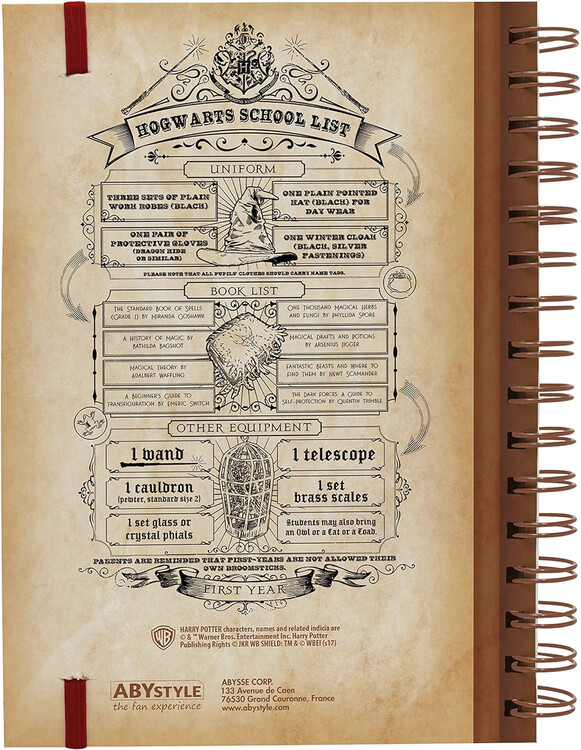 HOGWARTS SCHOOL LIST
UNIFORM
THREE SETS OF PLAIN
WORK ROBES (BLACK)
ONE PLAIN POINTED
HAT (BLACK) FOR
DAY WEAR
ONE PAIR OF
PROTECTIVE GLOVES
(DRAGON HIDE
OR SIMILAR)
ONE WINTER CLOAK
(BLACK, SILVER
FASTENINGS)
PLEASE NOTE THAT ALL PUPILS' CLOTHES SHOULD CARRY NAME TAGS.
BOOK LIST
THE STANDARD BOOK OF SPELLS
(GRADE 1) BY MIRANDA GOSHAWK
ONE THOUSAND MAGICAL HERBS
AND FUNGI BY PHYLLIDA SPORE
A HISTORY OF MAGIC BY
BATHILDA BAGSHOT
MAGICAL DRAFTS AND POTIONS
BY ARSENIUS JIGGER
MAGICAL THEORY BY
ADALBERT WAFFLING
FANTASTIC BEASTS AND WHERE TO
FIND THEM BY NEWT SCAMANDER
A BEGINNER'S GUIDE TO
TRANSFIGURATION BY EMERIC SWITCH
THE DARK FORCES: A GUIDE TO
SELF-PROTECTION BY QUENTIN TRIMBLE
OTHER EQUIPMENT
1 wand
1 telescope
1 cauldron
(pewter, standard size 2)
1 set
brass scales
1 set glass or
crystal phials
Students may also bring
an Owl or a Cat or a Toad.
PARENTS ARE REMINDED THAT FIRST-YEARS ARE NOT ALLOWED THEIR
OWN BROOMSTICKS.
FIRST YEAR
WB
HARRY POTTER characters, names and related indicia are
© & ™ Warner Bros. Entertainment Inc. Harry Potter
Publishing Rights © JKR WB SHIELD: TM & © WBEI (s17)
ABYSTYLE
the fan experience
ABYSSE CORP.
133 Avenue de Caen
76530 Grand Couronne, France
www.abystyle.com